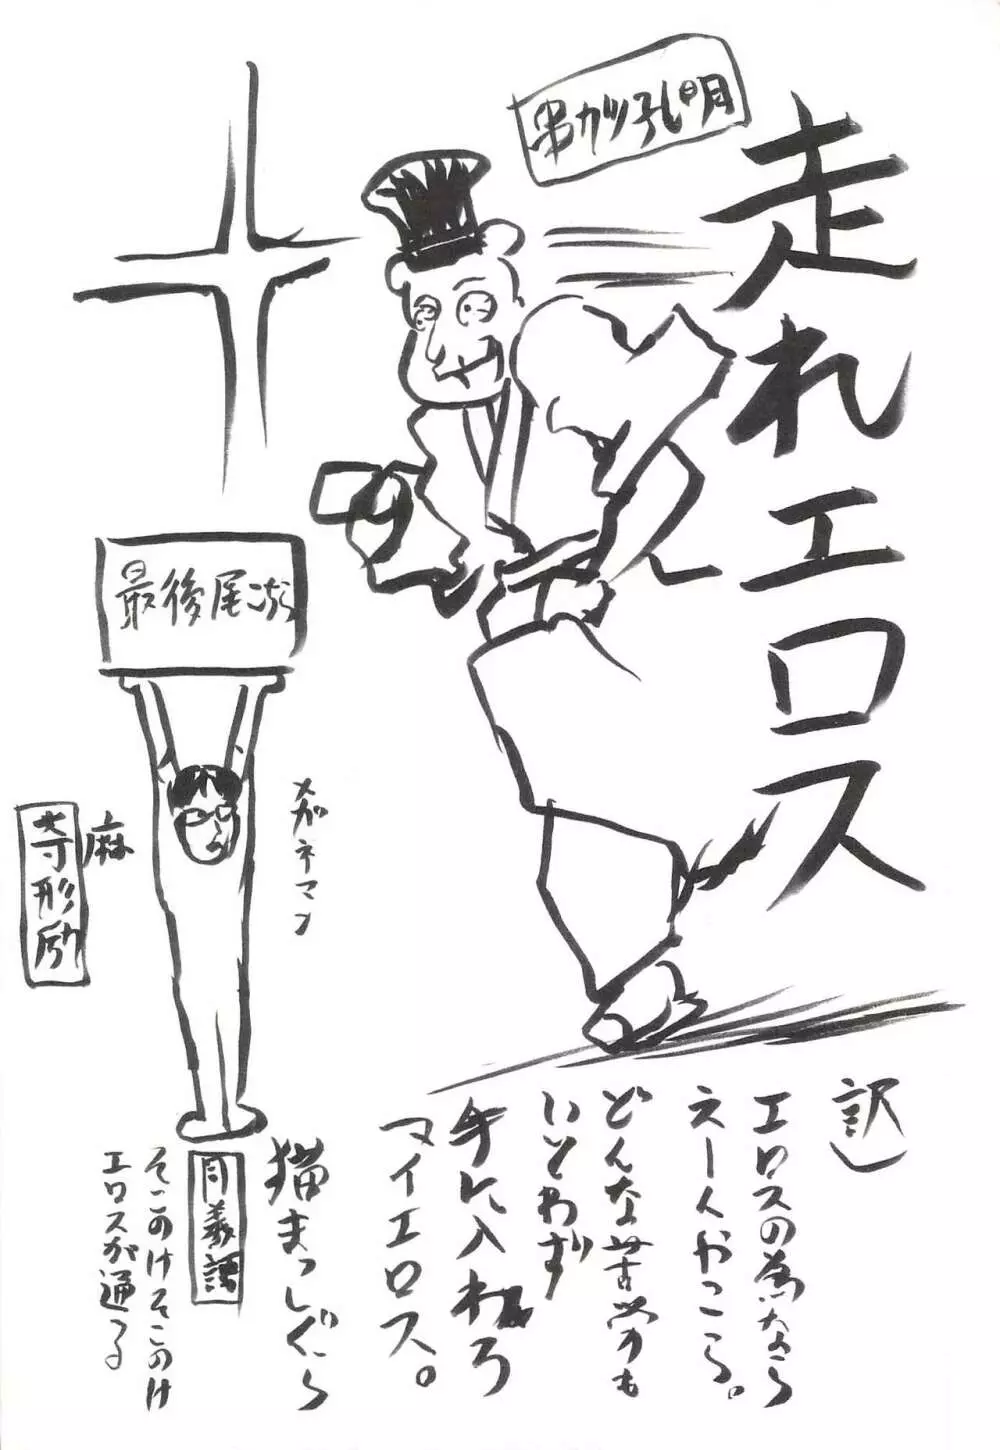 走れエロス
串カツ孔明
訳
エロスの為なら
えーんやこら。
どんな苦労も
いとわず
手に入れろ
マイエロス。
最後尾
メガネマン
麻
寺形励
同義語
猫まっしぐら
そこのけそこのけ
エロスが通る